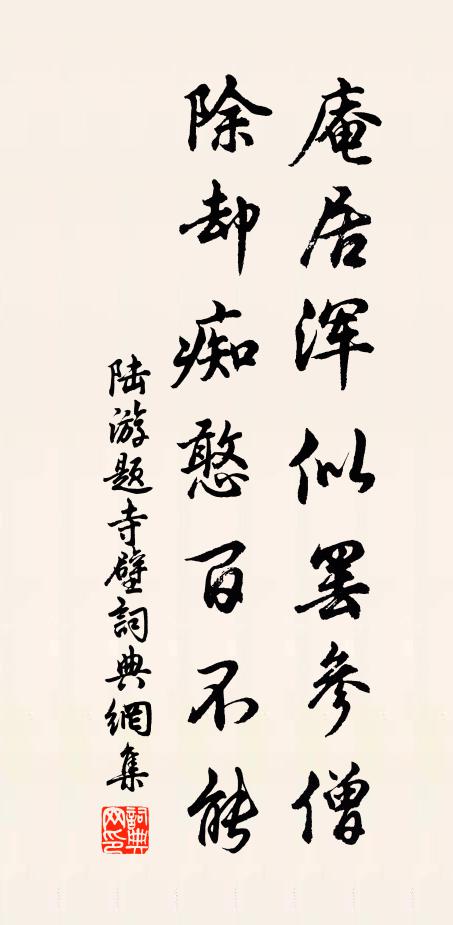 庵居浑似罢參僧
除却痴憨百不能
陆游题寺壁詞典網集
詞典网印